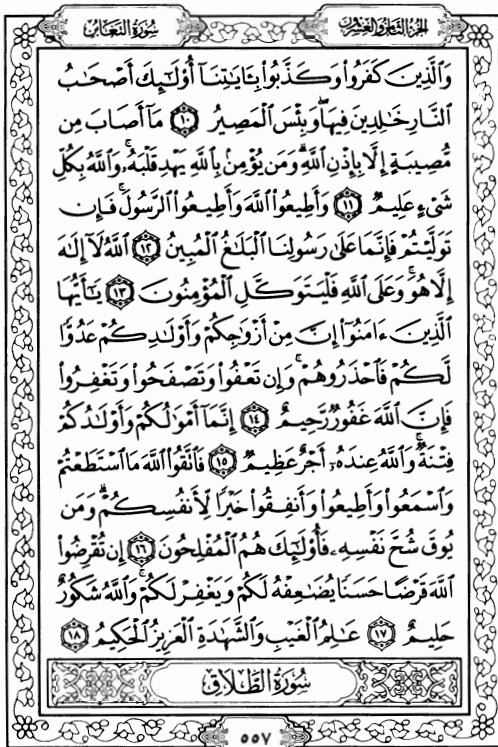 الجزء الثامن والعشرون
سورة التغابن
وَالَّذِينَ كَفَرُوا۟ وَكَذَّبُوا۟ بِـَٔايَـٰتِنَآ أُو۟لَـٰٓئِكَ أَصْحَـٰبُ
النَّارِ خَـٰلِدِينَ فِيهَا ۖ وَبِئْسَ الْمَصِيرُ ١٠ مَآ أَصَابَ مِن
مُّصِيبَةٍ إِلَّا بِإِذْنِ اللَّهِ ۗ وَمَن يُؤْمِنۢ بِاللَّهِ يَهْدِ قَلْبَهُۥ ۚ وَاللَّهُ بِكُلِّ
شَىْءٍ عَلِيمٌ ١١ وَأَطِيعُوا۟ اللَّهَ وَأَطِيعُوا۟ الرَّسُولَ ۚ فَإِن
تَوَلَّيْتُمْ فَإِنَّمَا عَلَىٰ رَسُولِنَا الْبَلَـٰغُ الْمُبِينُ ١٢ اللَّهُ لَآ إِلَـٰهَ
إِلَّا هُوَ ۚ وَعَلَى اللَّهِ فَلْيَتَوَكَّلِ الْمُؤْمِنُونَ ١٣ يَـٰٓأَيُّهَا
الَّذِينَ ءَامَنُوٓا۟ إِنَّ مِنْ أَزْوَٰجِكُمْ وَأَوْلَـٰدِكُمْ عَدُوًّا
لَّكُمْ فَاحْذَرُوهُمْ ۚ وَإِن تَعْفُوا۟ وَتَصْفَحُوا۟ وَتَغْفِرُوا۟
فَإِنَّ اللَّهَ غَفُورٌ رَّحِيمٌ ١٤ إِنَّمَآ أَمْوَٰلُكُمْ وَأَوْلَـٰدُكُمْ
فِتْنَةٌ ۚ وَاللَّهُ عِندَهُۥٓ أَجْرٌ عَظِيمٌ ١٥ فَاتَّقُوا۟ اللَّهَ مَا اسْتَطَعْتُمْ
وَاسْمَعُوا۟ وَأَطِيعُوا۟ وَأَنفِقُوا۟ خَيْرًا لِّأَنفُسِكُمْ ۗ وَمَن
يُوقَ شُحَّ نَفْسِهِۦ فَأُو۟لَـٰٓئِكَ هُمُ الْمُفْلِحُونَ ١٦ إِن تُقْرِضُوا۟
اللَّهَ قَرْضًا حَسَنًا يُضَـٰعِفْهُ لَكُمْ وَيَغْفِرْ لَكُمْ ۚ وَاللَّهُ شَكُورٌ
حَلِيمٌ ١٧ عَـٰلِمُ الْغَيْبِ وَالشَّهَـٰدَةِ الْعَزِيزُ الْحَكِيمُ ١٨
سُورَةُ الطَّلَاقِ
٥٥٧